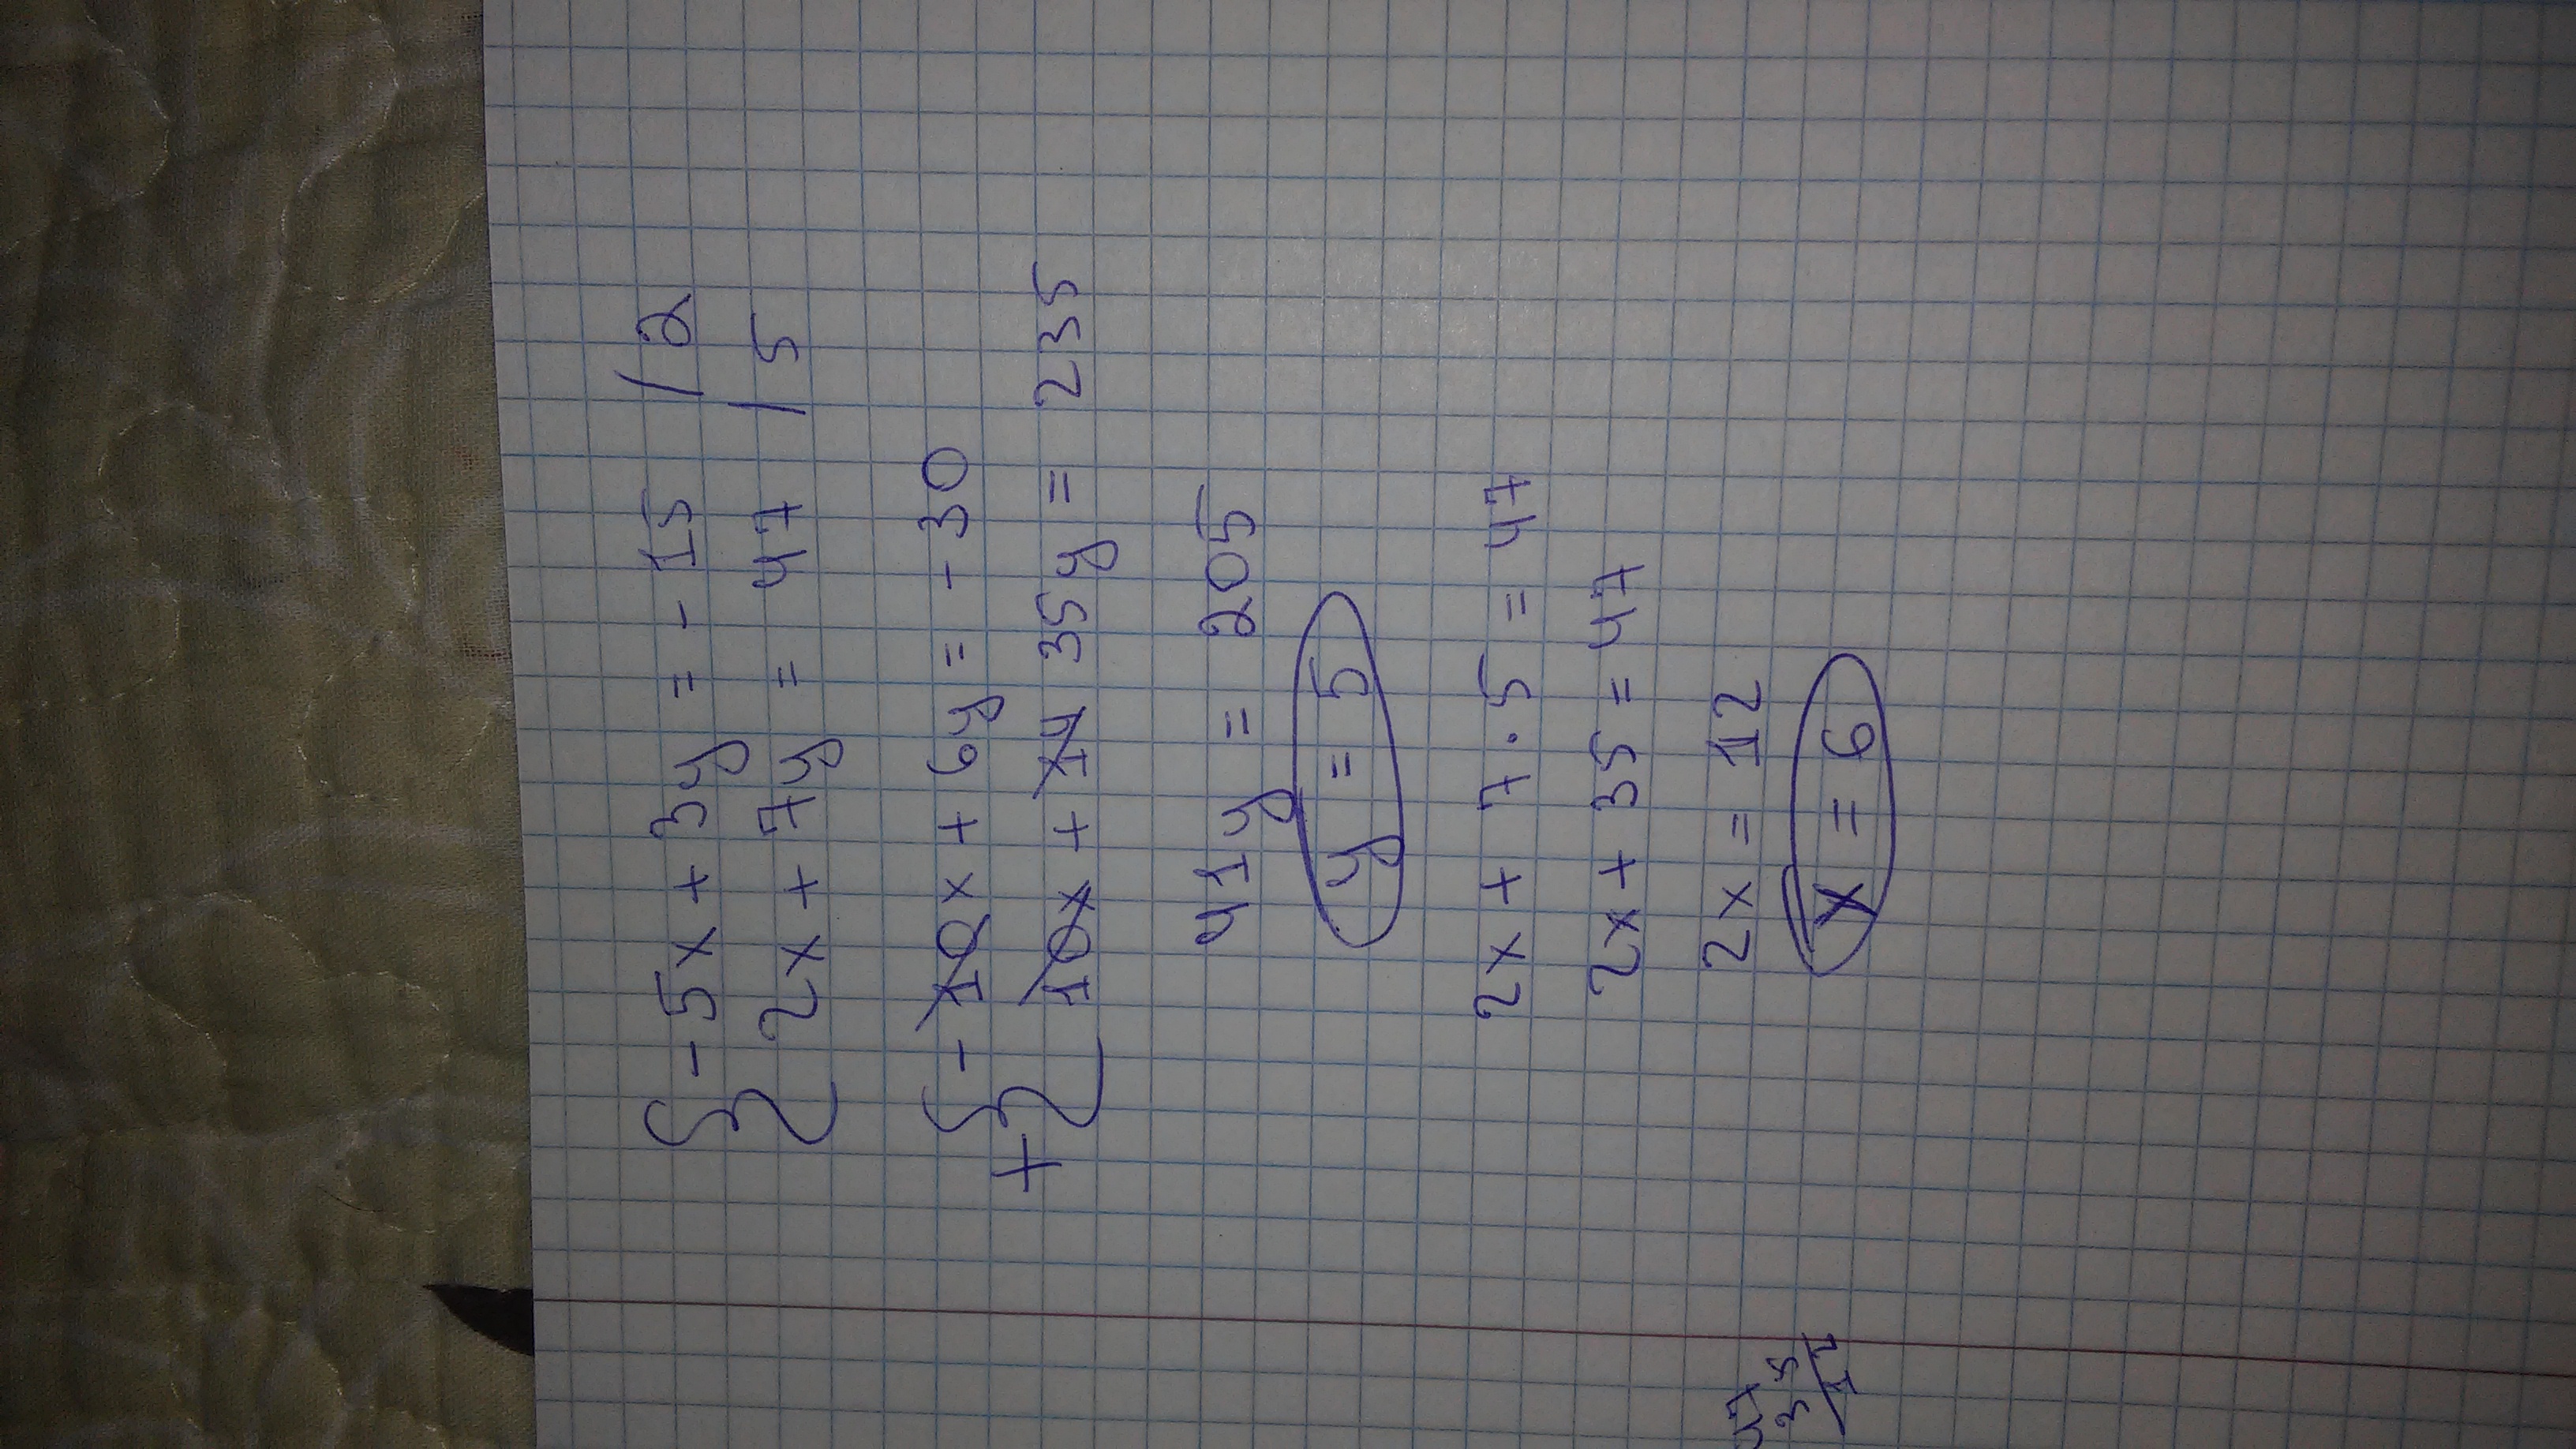 { -5x + 3y = -15 /2
2x + 7y = 47 /5
+ { -10x + 6y = -30
10x + 14 35y = 235
41y = 205
y = 5
2x + 7 · 5 = 47
2x + 35 = 47
2x = 12
x = 6
47
35
12